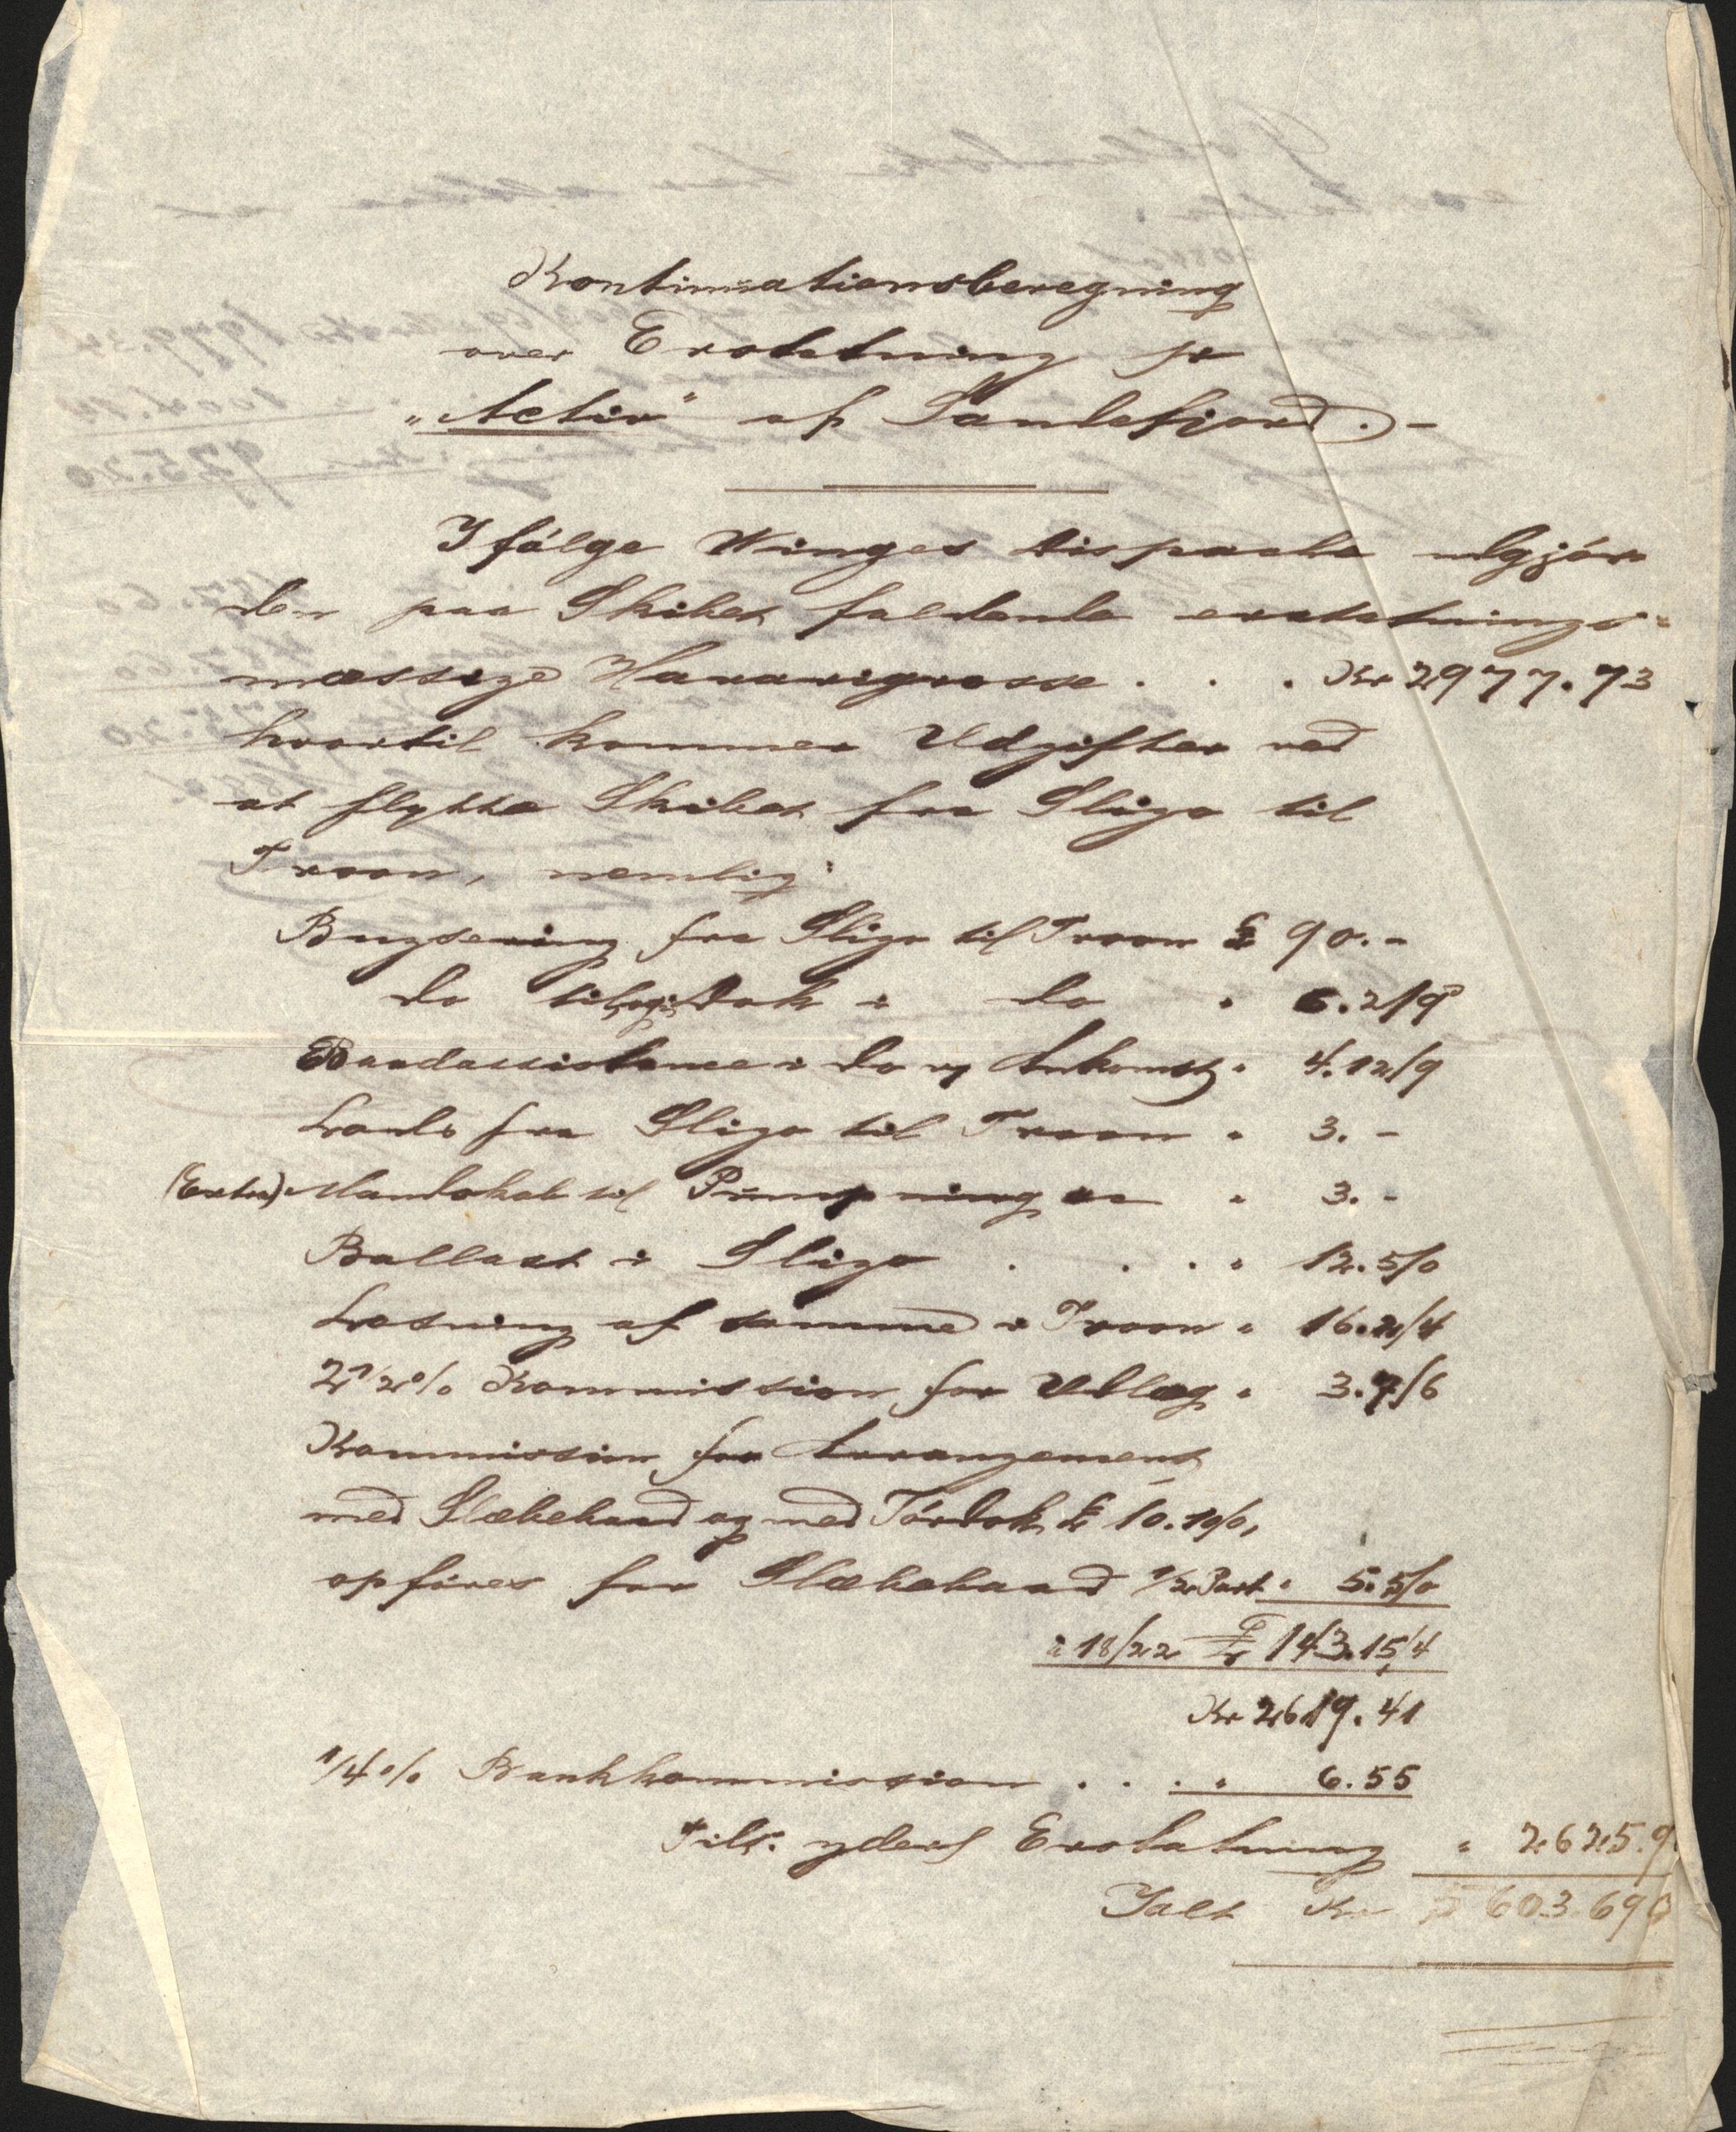 Kontinuationsberegning
over Erstatning pr
„Activ" af Sandefjord. –
Ifölge Winges dispache udgjör
den paa Skibet faldende erstatnings-
mæssige Havarigrosse . . . Kr 2977.73
hvortil kommer Udgifter ved
at flytte Skibet fra Sligo til
Troon, nemlig:
Bugsering fra Sligo til Troon £ 90. -
do til og i Dok i do " 6.2/9
Baadassistance i do og Ankomst " 4.12/9
Lods fra Sligo til Troon " 3. -
(Extra) Mandskab til Pumpning " 3. -
Ballast i Sligo . . . " 12.5/0
Losning af samme i Troon " 16.2/4
2 1/2 % Kommission for Udlæg " 3.7/6
Kommission for Arrangement
med Slæbebaad og med Tördok £ 10.10/0,
opföres for Slæbebaad 1/2 Part " 5.5/0
à 18/22 £ 143.15/4
Kr 2619.41
1/4 % Bankkommission . . . " 6.55
Tils. yderl Erstatning " 2625.9
Ialt Kr 5603 69